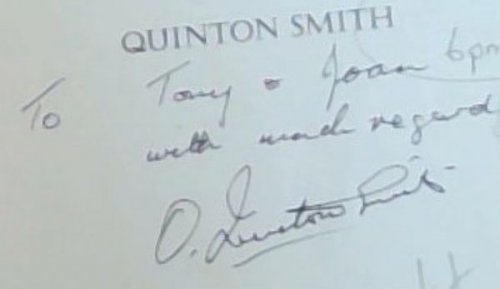 QUINTON SMITH
To Tony & Joan 6pm
with much regard
O. Quinton Smith